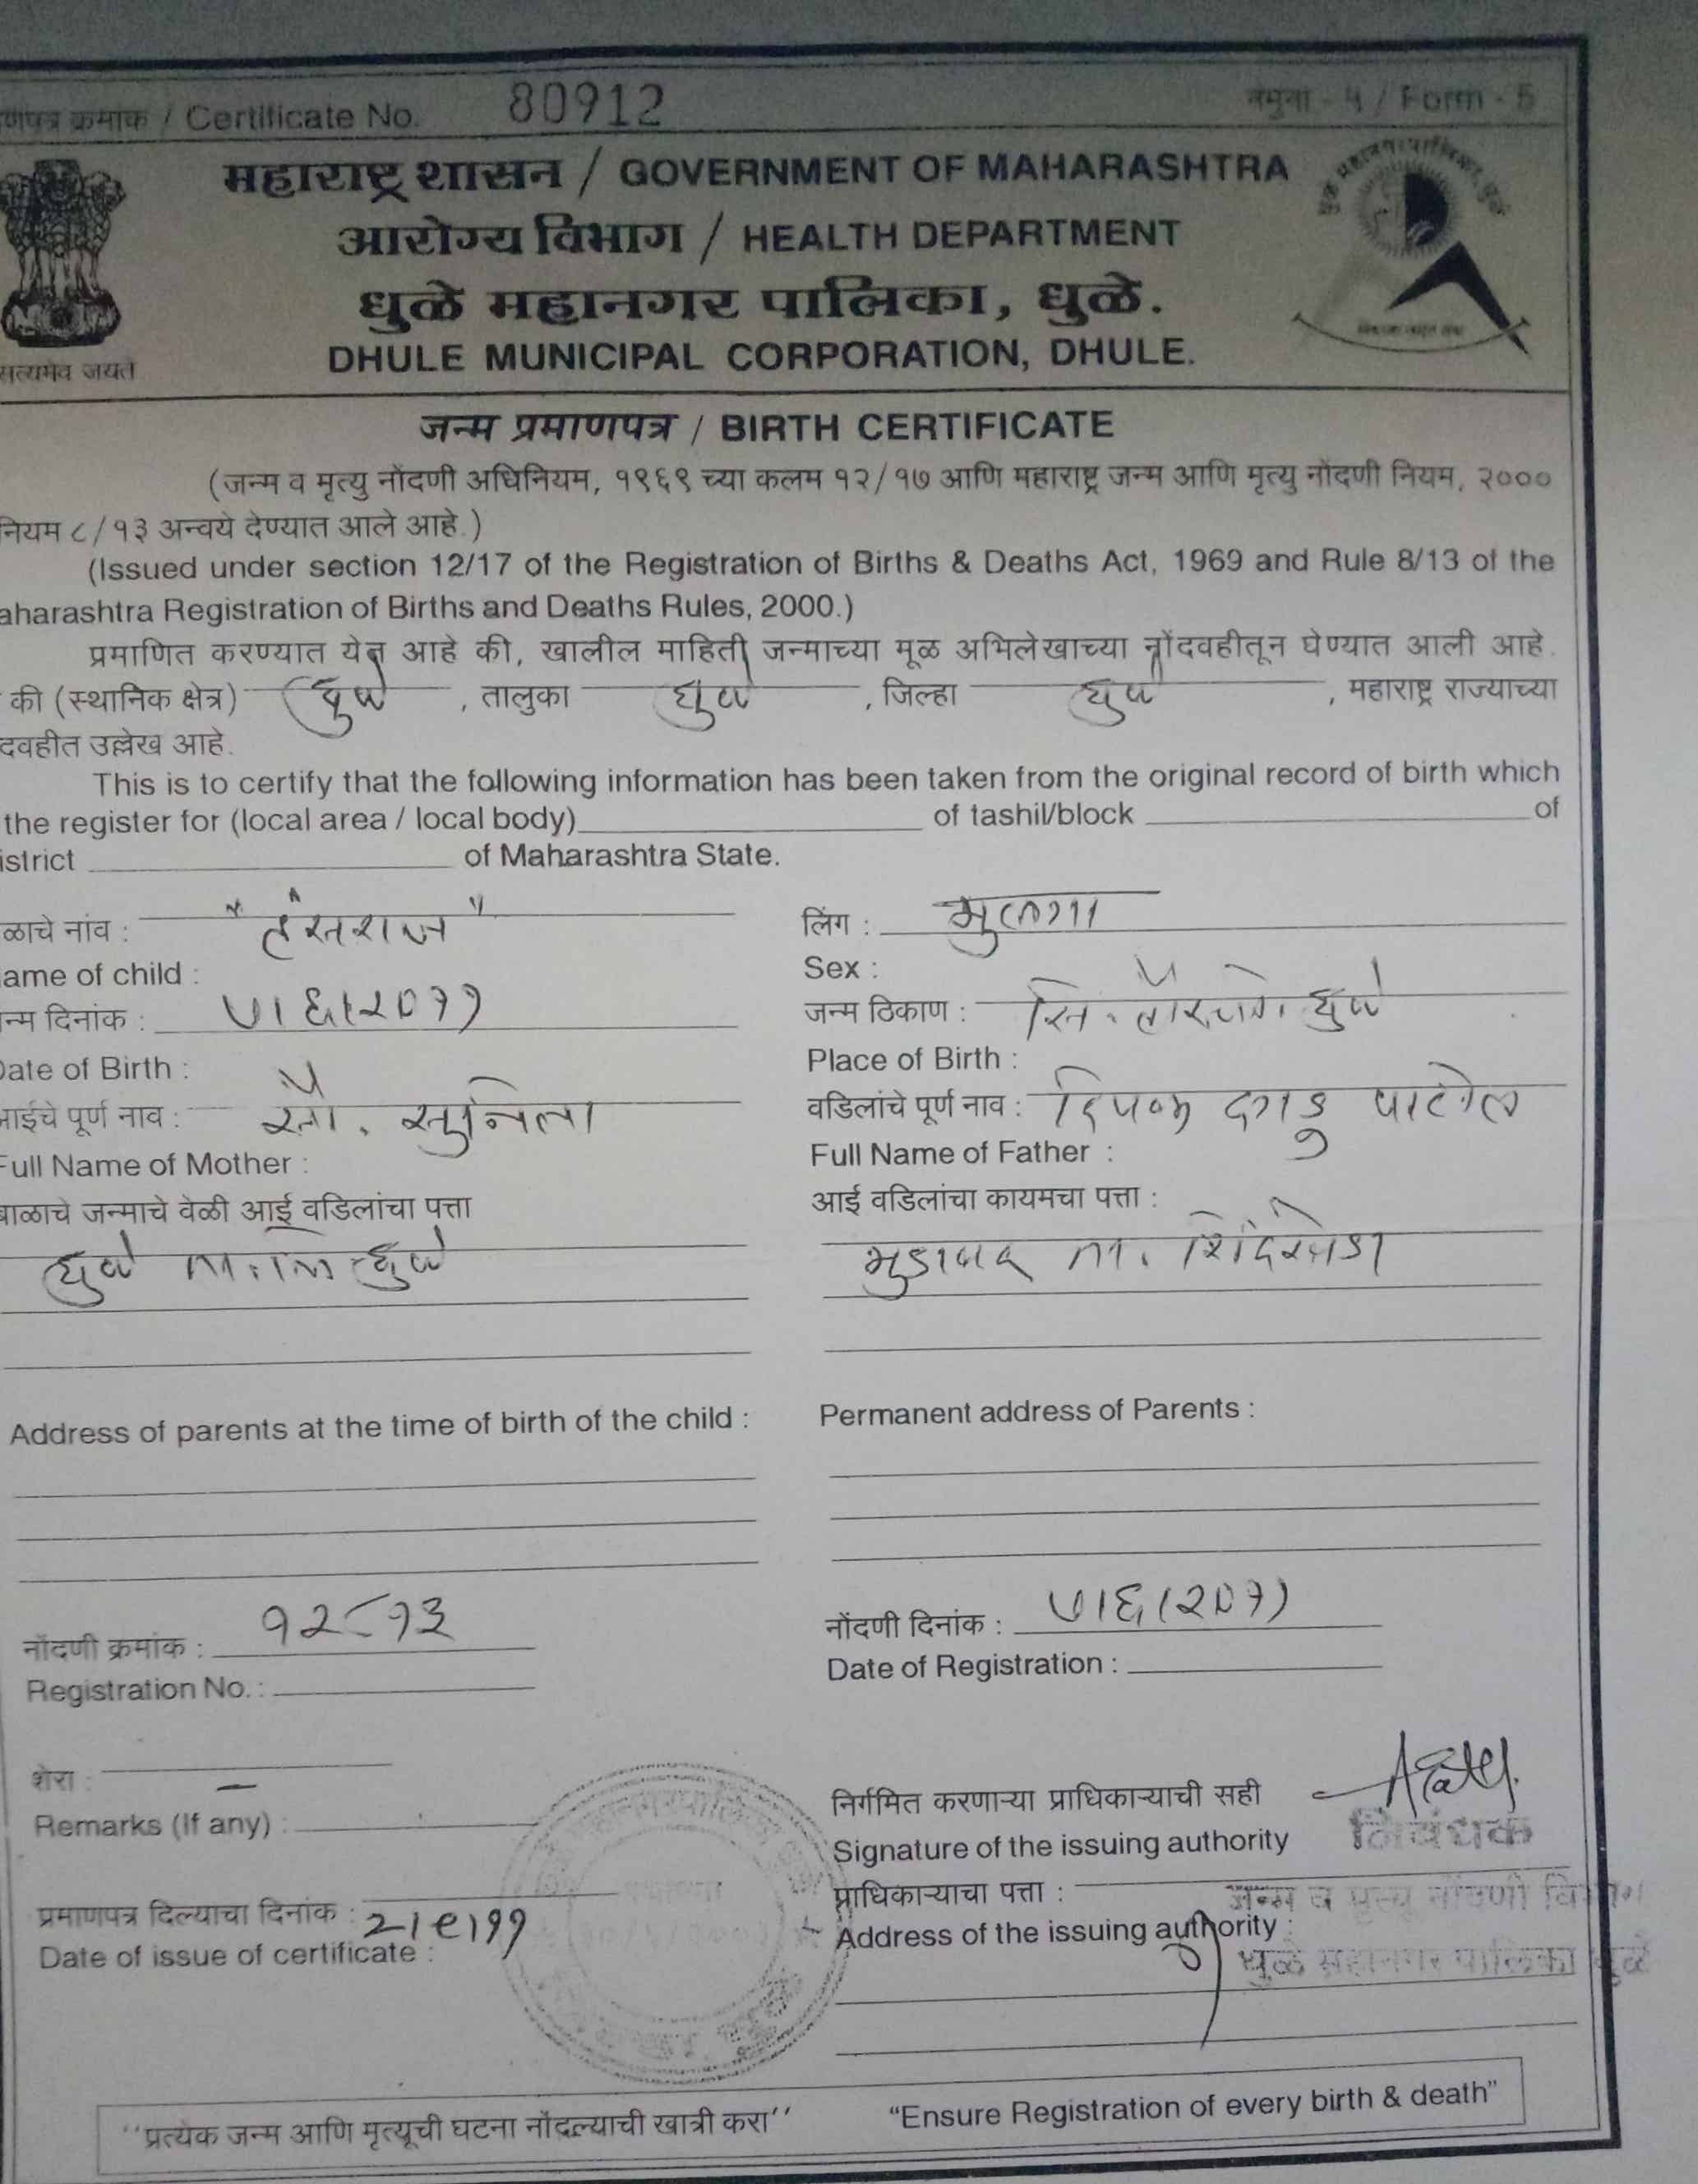 णपत्र क्रमांक / Certificate No. 80912 नमुना - ५ / Form - 5
महाराष्ट्र शासन / GOVERNMENT OF MAHARASHTRA
आरोग्य विभाग / HEALTH DEPARTMENT
धुळे महानगर पालिका, धुळे.
DHULE MUNICIPAL CORPORATION, DHULE.
सत्यमेव जयते
जन्म प्रमाणपत्र / BIRTH CERTIFICATE
(जन्म व मृत्यु नोंदणी अधिनियम, १९६९ च्या कलम १२/१७ आणि महाराष्ट्र जन्म आणि मृत्यु नोंदणी नियम, २०००
नियम ८/१३ अन्वये देण्यात आले आहे.)
(Issued under section 12/17 of the Registration of Births & Deaths Act, 1969 and Rule 8/13 of the
aharashtra Registration of Births and Deaths Rules, 2000.)
प्रमाणित करण्यात येत आहे की, खालील माहिती जन्माच्या मूळ अभिलेखाच्या नोंदवहीतून घेण्यात आली आहे.
की (स्थानिक क्षेत्र) धुळे, तालुका धुळे, जिल्हा धुळे, महाराष्ट्र राज्याच्या
दवहीत उल्लेख आहे.
This is to certify that the following information has been taken from the original record of birth which
the register for (local area / local body) of tashil/block of
istrict of Maharashtra State.
ळाचे नांव : लिंग : मुलगा
ame of child : Sex :
न्म दिनांक : जन्म ठिकाण : धुळे
Date of Birth : Place of Birth :
आईचे पूर्ण नाव : सौ. सुनिता वडिलांचे पूर्ण नाव : दिपक दगाडु पाटील
Full Name of Mother : Full Name of Father :
बाळाचे जन्माचे वेळी आई वडिलांचा पत्ता आई वडिलांचा कायमचा पत्ता :
धुळे ता. जि. धुळे मुडावद ता. शिंदखेडा
Address of parents at the time of birth of the child : Permanent address of Parents :
नोंदणी क्रमांक : नोंदणी दिनांक :
Registration No. : Date of Registration :
शेरा : –
Remarks (If any) : निर्गमित करणाऱ्या प्राधिकाऱ्याची सही
Signature of the issuing authority निबंधक
प्रमाणपत्र दिल्याचा दिनांक : प्राधिकाऱ्याचा पत्ता : जन्म व मृत्यू नोंदणी विभाग
Date of issue of certificate : Address of the issuing authority : धुळे महानगर पालिका धुळे
''प्रत्येक जन्म आणि मृत्यूची घटना नोंदल्याची खात्री करा'' "Ensure Registration of every birth & death"